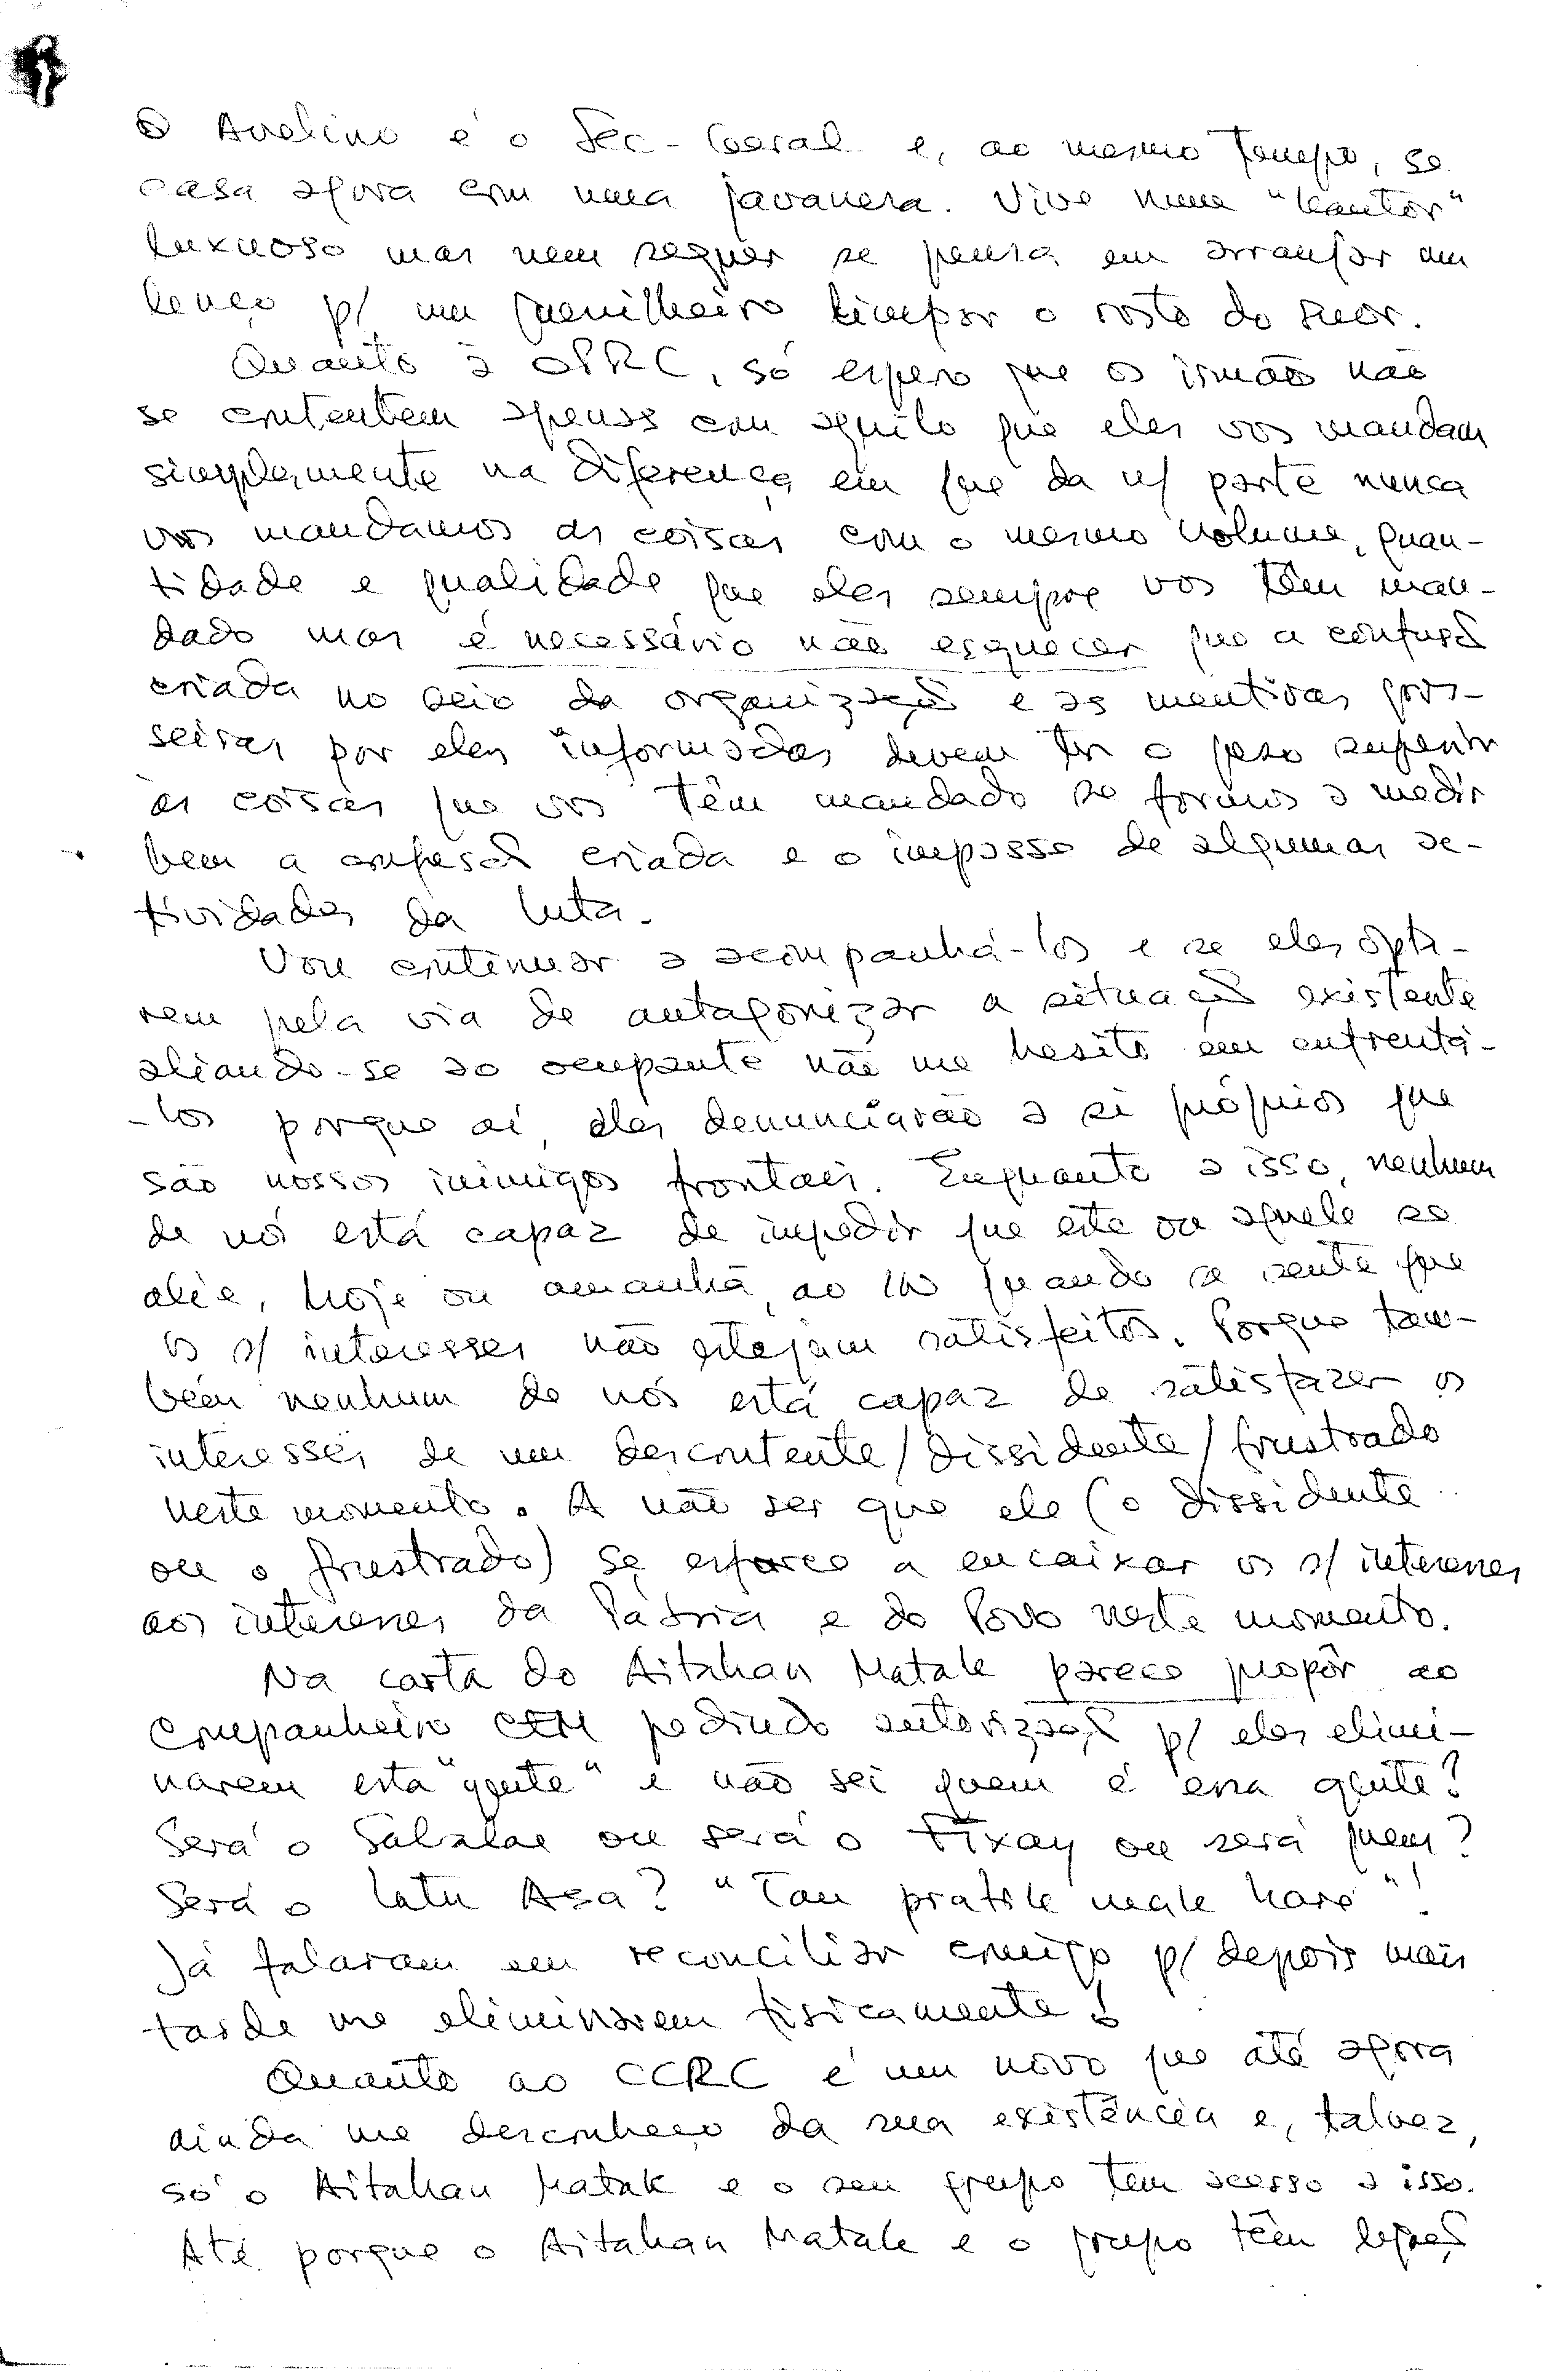 O Avelino é o Sec-Geral e, ao mesmo tempo, se
casa agora com uma javanesa. Vive num "kantor"
luxuoso mas nem sequer se pensa em arranjar um
lenço p/ um guerrilheiro limpar o rosto do suor.
Quanto à OPRC, só espero que os irmãos não
se contentem apenas com aquilo que eles vos mandam
simplesmente na diferença em que da n/ parte nunca
vos mandamos as coisas com o mesmo volume, quan-
tidade e qualidade que eles sempre vos têm man-
dado mas é necessário não esquecer que a confusão
criada no seio da organização e as mentiras gros-
seiras por eles informadas devem ter o peso superior
às coisas que vos têm mandado se formos a medir
bem a confusão criada e o impasse de algumas ac-
tividades da luta.
Vou continuar a acompanhá-los e se eles opta-
rem pela via de antagonizar a situação existente
aliando-se ao ocupante não me hesito em enfrentá-
-los porque aí, eles denunciarão a si próprios que
são nossos inimigos frontais. Enquanto a isso, nenhum
de nós está capaz de impedir que este ou aquele se
alie, hoje ou amanhã, ao IN quando se sente que
os s/ interesses não estejam satisfeitos. Porque tam-
bém nenhum de nós está capaz de satisfazer os
interesses de um descontente/dissidente/frustrado
neste momento. A não ser que ele (o dissidente
ou o frustrado) se esforce a encaixar os s/ interesses
aos interesses da Pátria e do Povo neste momento.
Na carta do Aitahan Matak parece propôr ao
companheiro CEM pedindo autorização p/ eles elimi-
narem esta "gente" e não sei quem é essa gente?
Será o Sabalae ou será o Fixay ou será quem?
Será o Latu Asa? "Tau pratik mak haré"!
Já falaram em reconciliar comigo p/ depois mais
tarde me eliminarem fisicamente!
Quanto ao CCRC é um novo que até agora
ainda me desconheço da sua existência e, talvez,
só o Aitahan Matak e o seu grupo tem acesso a isso.
Até porque o Aitahan Matak e o grupo têm ligação